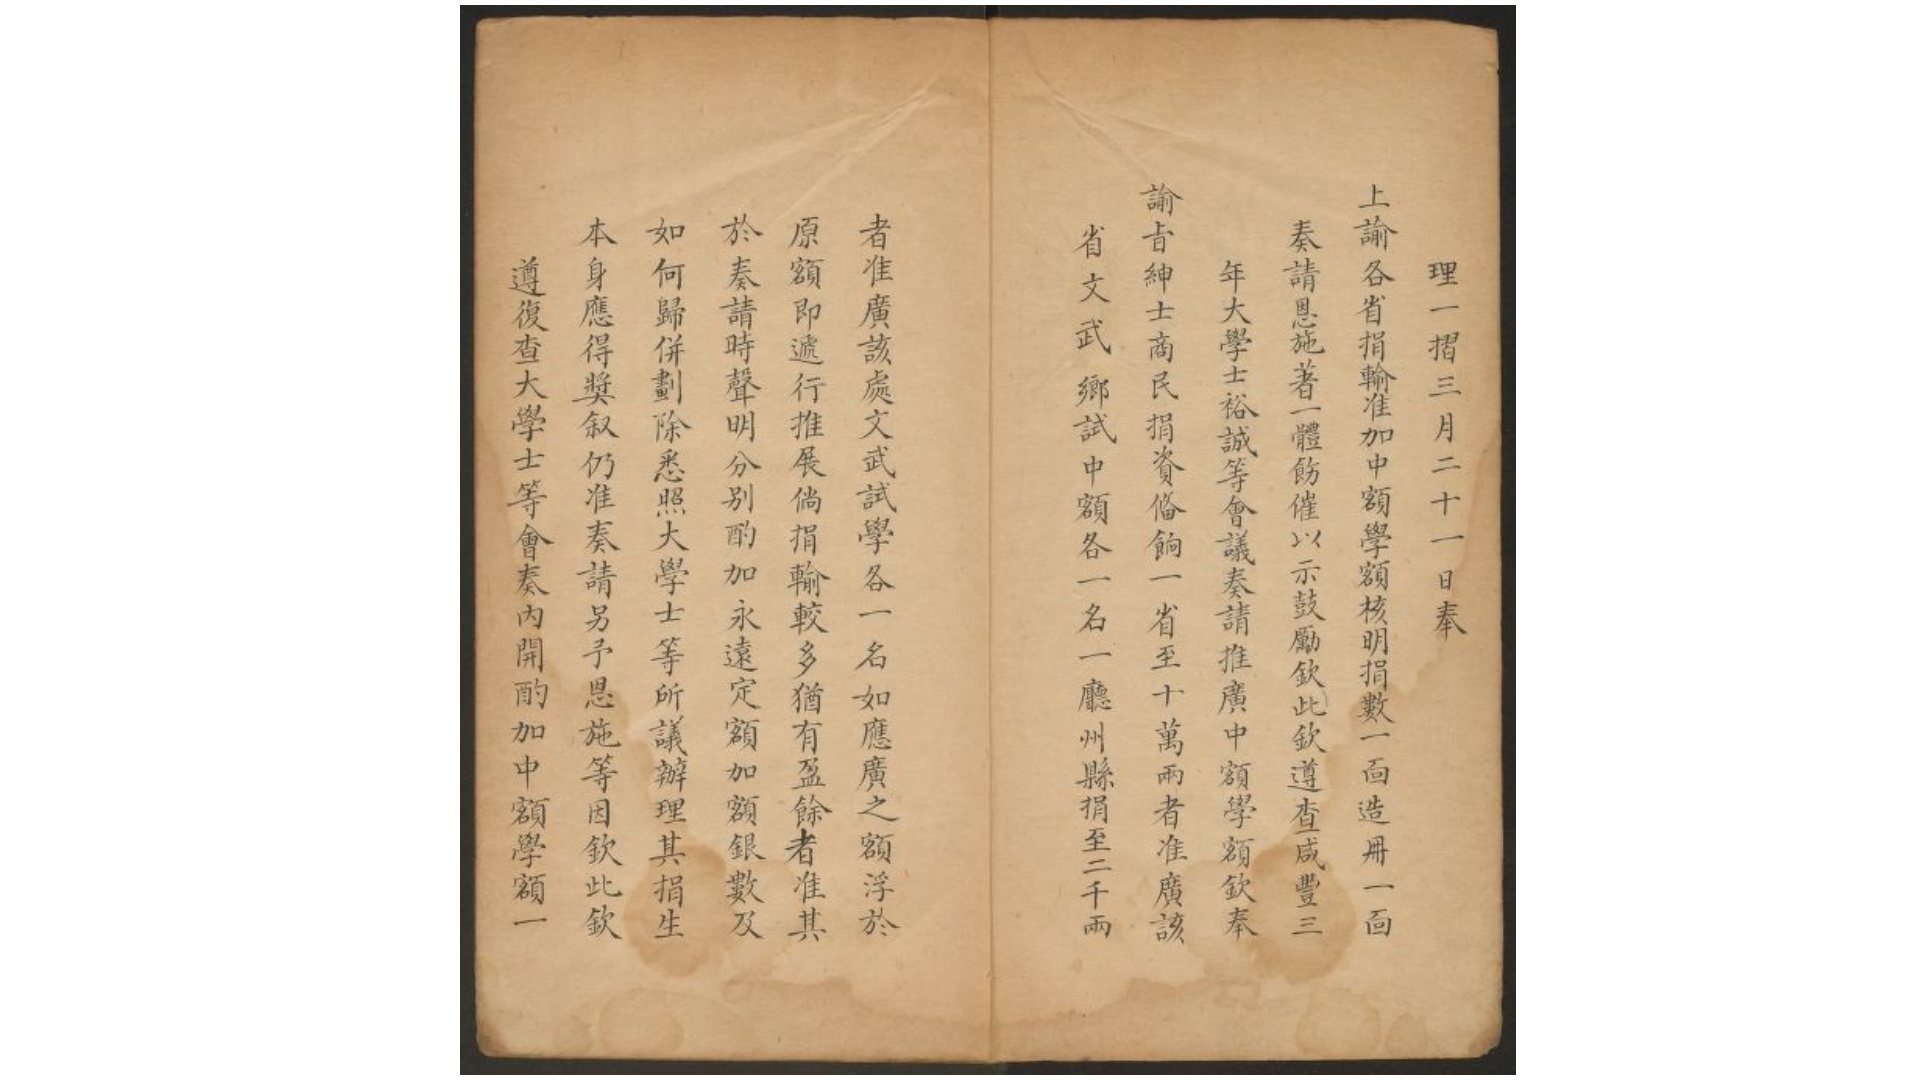 理一摺三月二十一日奉
上諭各省捐輸准加中額學額核明捐數一面造册一面
奏請恩施著一體飭催以示鼓勵欽此欽遵查咸豐三
年大學士裕誠等會議奏請推廣中額學額欽奉
諭旨紳士商民捐資備餉一省至十萬兩者准廣該
省文武鄉試中額各一名一廳州縣捐至二千兩
者准廣該處文武試學各一名如應廣之額浮於
原額即遞行推展倘捐輸較多猶有盈餘者准其
於奏請時聲明分別酌加永遠定額加額銀數及
如何歸併劃除悉照大學士等所議辦理其捐生
本身應得獎叙仍准奏請另予恩施等因欽此欽
遵復查大學士等會奏內開酌加中額學額一